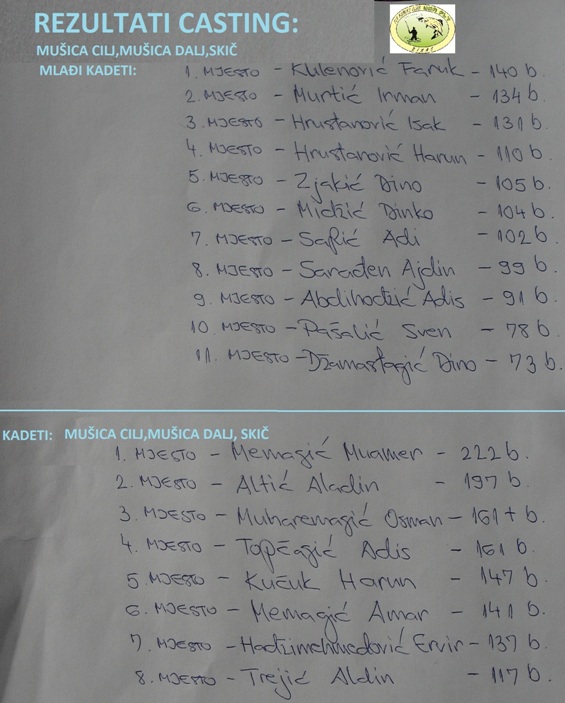 REZULTATI CASTING:
MUŠICA CILJ,MUŠICA DALJ,SKIČ
MLAĐI KADETI:
1. MJESTO - Kulenović Faruk - 140 b.
2. MJESTO - Murtić Irman - 134 b.
3. MJESTO - Hrustanović Isak - 131 b.
4. MJESTO - Hrustanović Harun - 110 b.
5. MJESTO - Zjakić Dino - 105 b.
6. MJESTO - Midžić Dinko - 104 b.
7. MJESTO - Safić Adi - 102 b.
8. MJESTO - Sarađen Ajdin - 99 b.
9. MJESTO - Abdihodžić Adis - 91 b.
10. MJESTO - Pašalić Sven - 78 b.
11. MJESTO - Džamastagić Dino - 73 b.
KADETI: MUŠICA CILJ,MUŠICA DALJ, SKIČ
1. MJESTO - Memagić Muamer - 222 b.
2. MJESTO - Altić Aladin - 197 b.
3. MJESTO - Muharemagić Osman - 161 + b.
4. MJESTO - Topčagić Adis - 161 b.
5 MJESTO - Kučuk Harun - 147 b.
6. MJESTO - Memagić Amar - 141 b.
7. MJESTO - Hadžimehmedović Ervin - 137 b.
8. MJESTO - Trejić Aldin - 117 b.